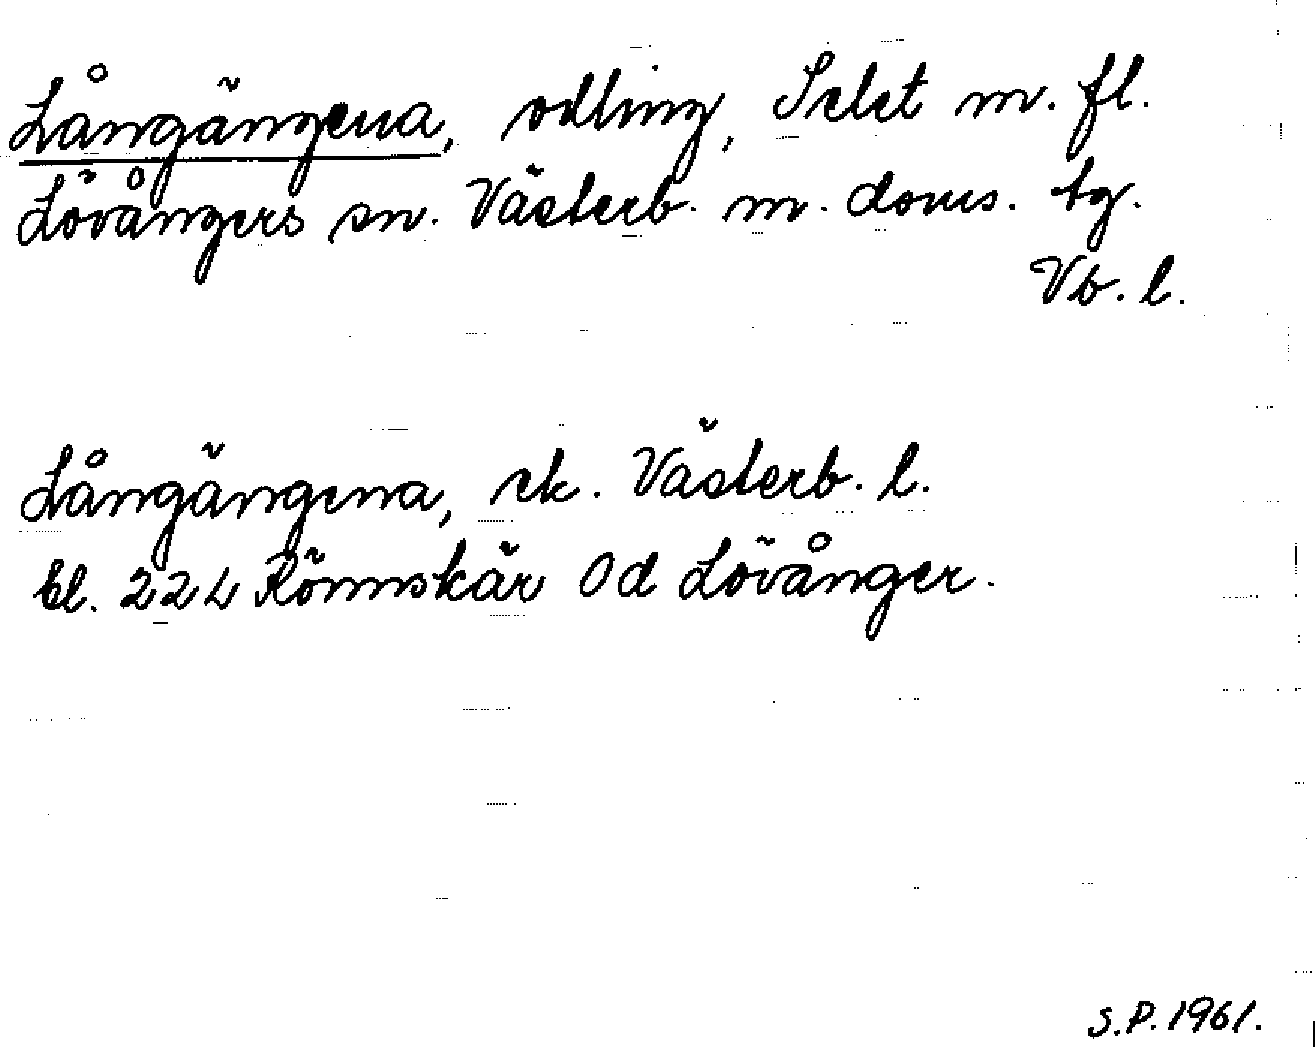 Långängena, odling, Selet m. fl.
Lövångers sn. Västerb. m. doms. tg.
Vb. l.
Långängena, ek. Västerb. l.
bl. 22 L Rönnskär Od Lövånger.
S.P. 1961.